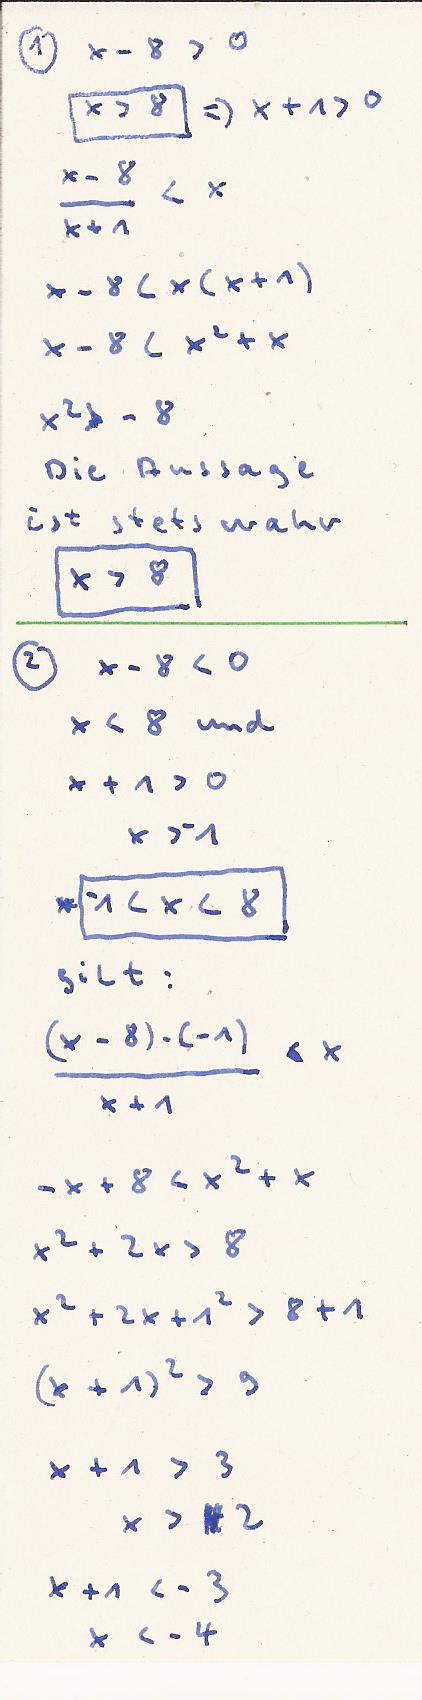 ① x - 8 > 0
x > 8 ⇒ x + 1 > 0
(x - 8)/(x + 1) < x
x - 8 < x(x + 1)
x - 8 < x² + x
x² > - 8
Die Aussage
ist stets wahr
x > 8
② x - 8 < 0
x < 8 und
x + 1 > 0
x > -1
-1 < x < 8
gilt:
((x - 8)·(-1))/(x + 1) < x
-x + 8 < x² + x
x² + 2x > 8
x² + 2x + 1² > 8 + 1
(x + 1)² > 9
x + 1 > 3
x > 2
x + 1 < -3
x < -4